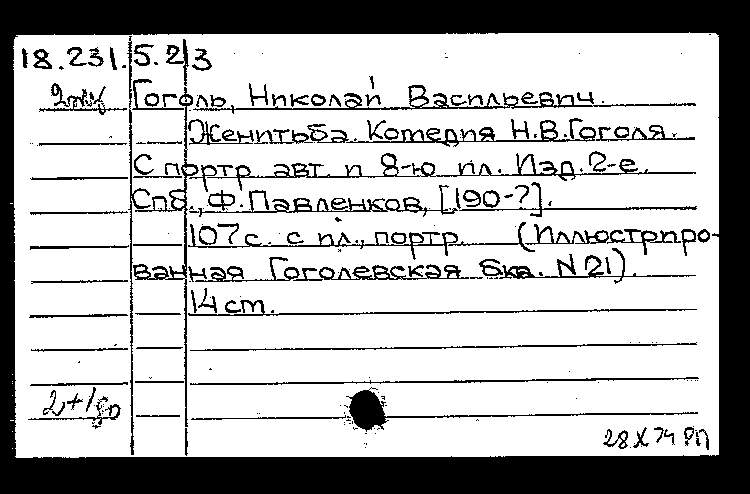 18.231.5.23
2экз
Гоголь, Николай Васильевич.
Женитьба. Комедия Н.В.Гоголя.
С портр авт. и 8-ю ил. Изд. 2-е.
Спб., Ф. Павленков, [190-?].
107 с. с ил., портр. (Иллюстриро-
ванная Гоголевская бка. N 21).
14 cm.
2+1
28 X 74 РП